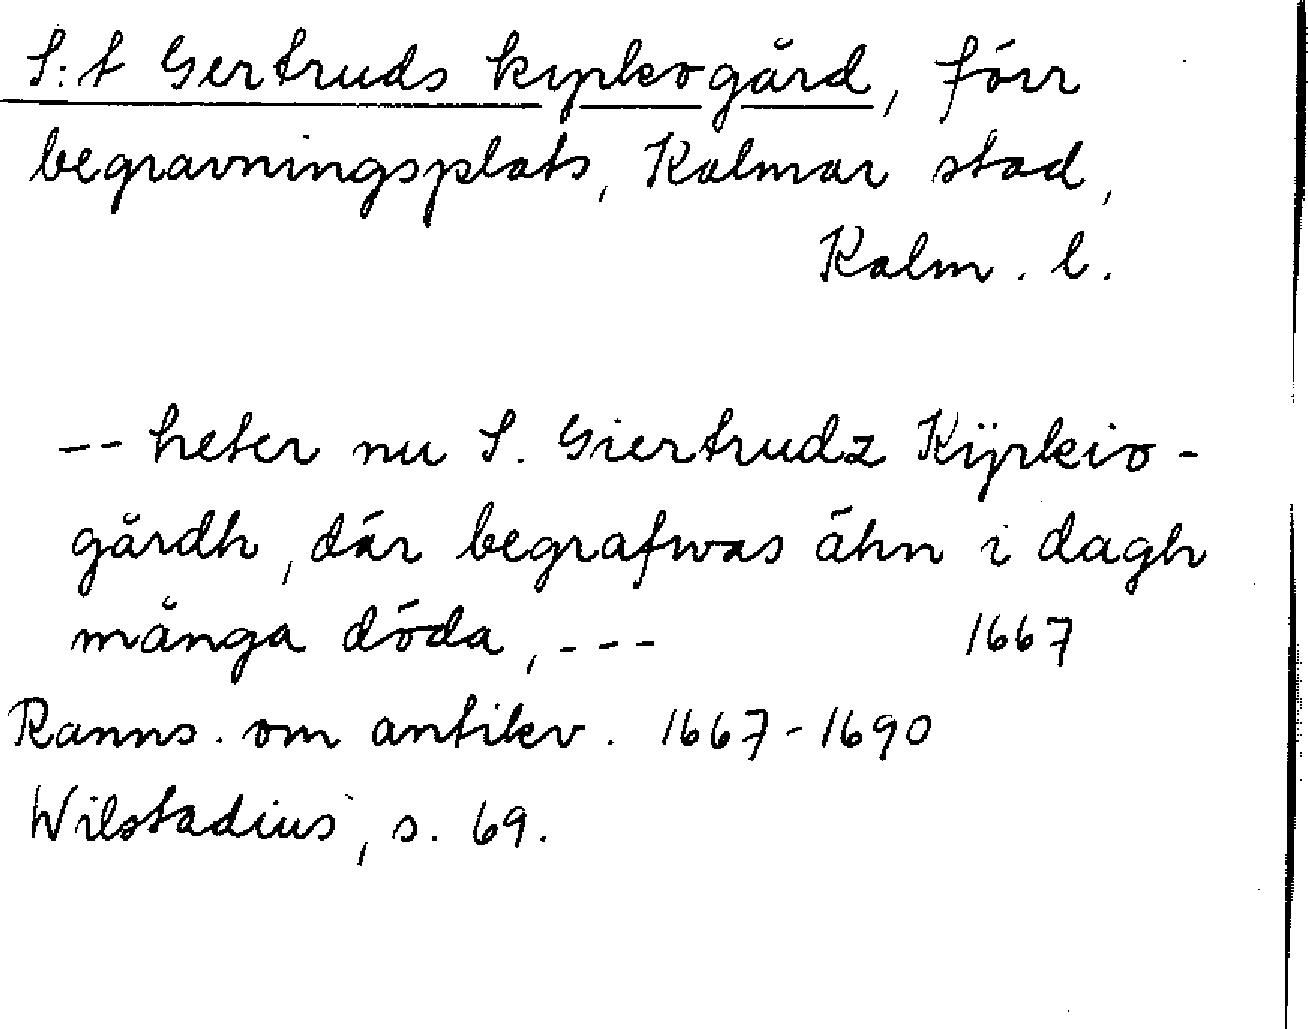 S:t Gertruds kyrkogård, förr
begravningsplats, Kalmar stad,
Kalm. l.
-- heter nu S. Giertrudz Kÿrkio-
gårdh, där begrafwas ähn i dagh
många döda, --- 1667
Ranns. om antikv. 1667-1690
Wilstadius, s. 69.